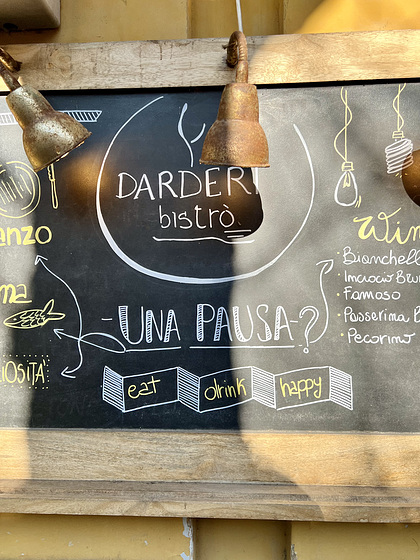 DARDERI
bistrò
anzo
na
IOSITÀ
-UNA PAUSA-?
eat drink happy
Win
Bianchell
Incrocio Bru
Famoso
Passerina B
Pecorino